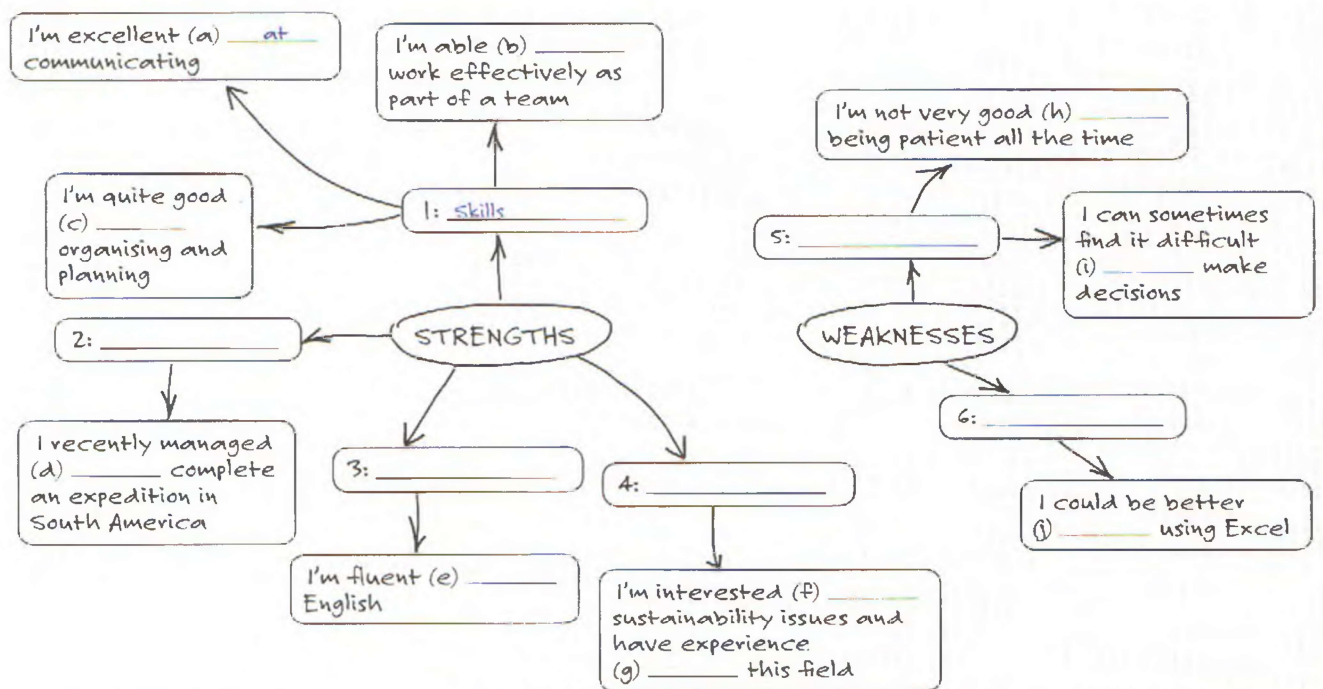 I'm excellent (a) at
communicating
I'm able (b) ________
work effectively as
part of a team
I'm quite good
(c) ________
organising and
planning
1: Skills
2: ________
STRENGTHS
I recently managed
(d) ________ complete
an expedition in
South America
3: ________
I'm fluent (e) ________
English
4: ________
I'm interested (f) ________
sustainability issues and
have experience
(g) ________ this field
I'm not very good (h) ________
being patient all the time
5: ________
I can sometimes
find it difficult
(i) ________ make
decisions
WEAKNESSES
6: ________
I could be better
(j) ________ using Excel